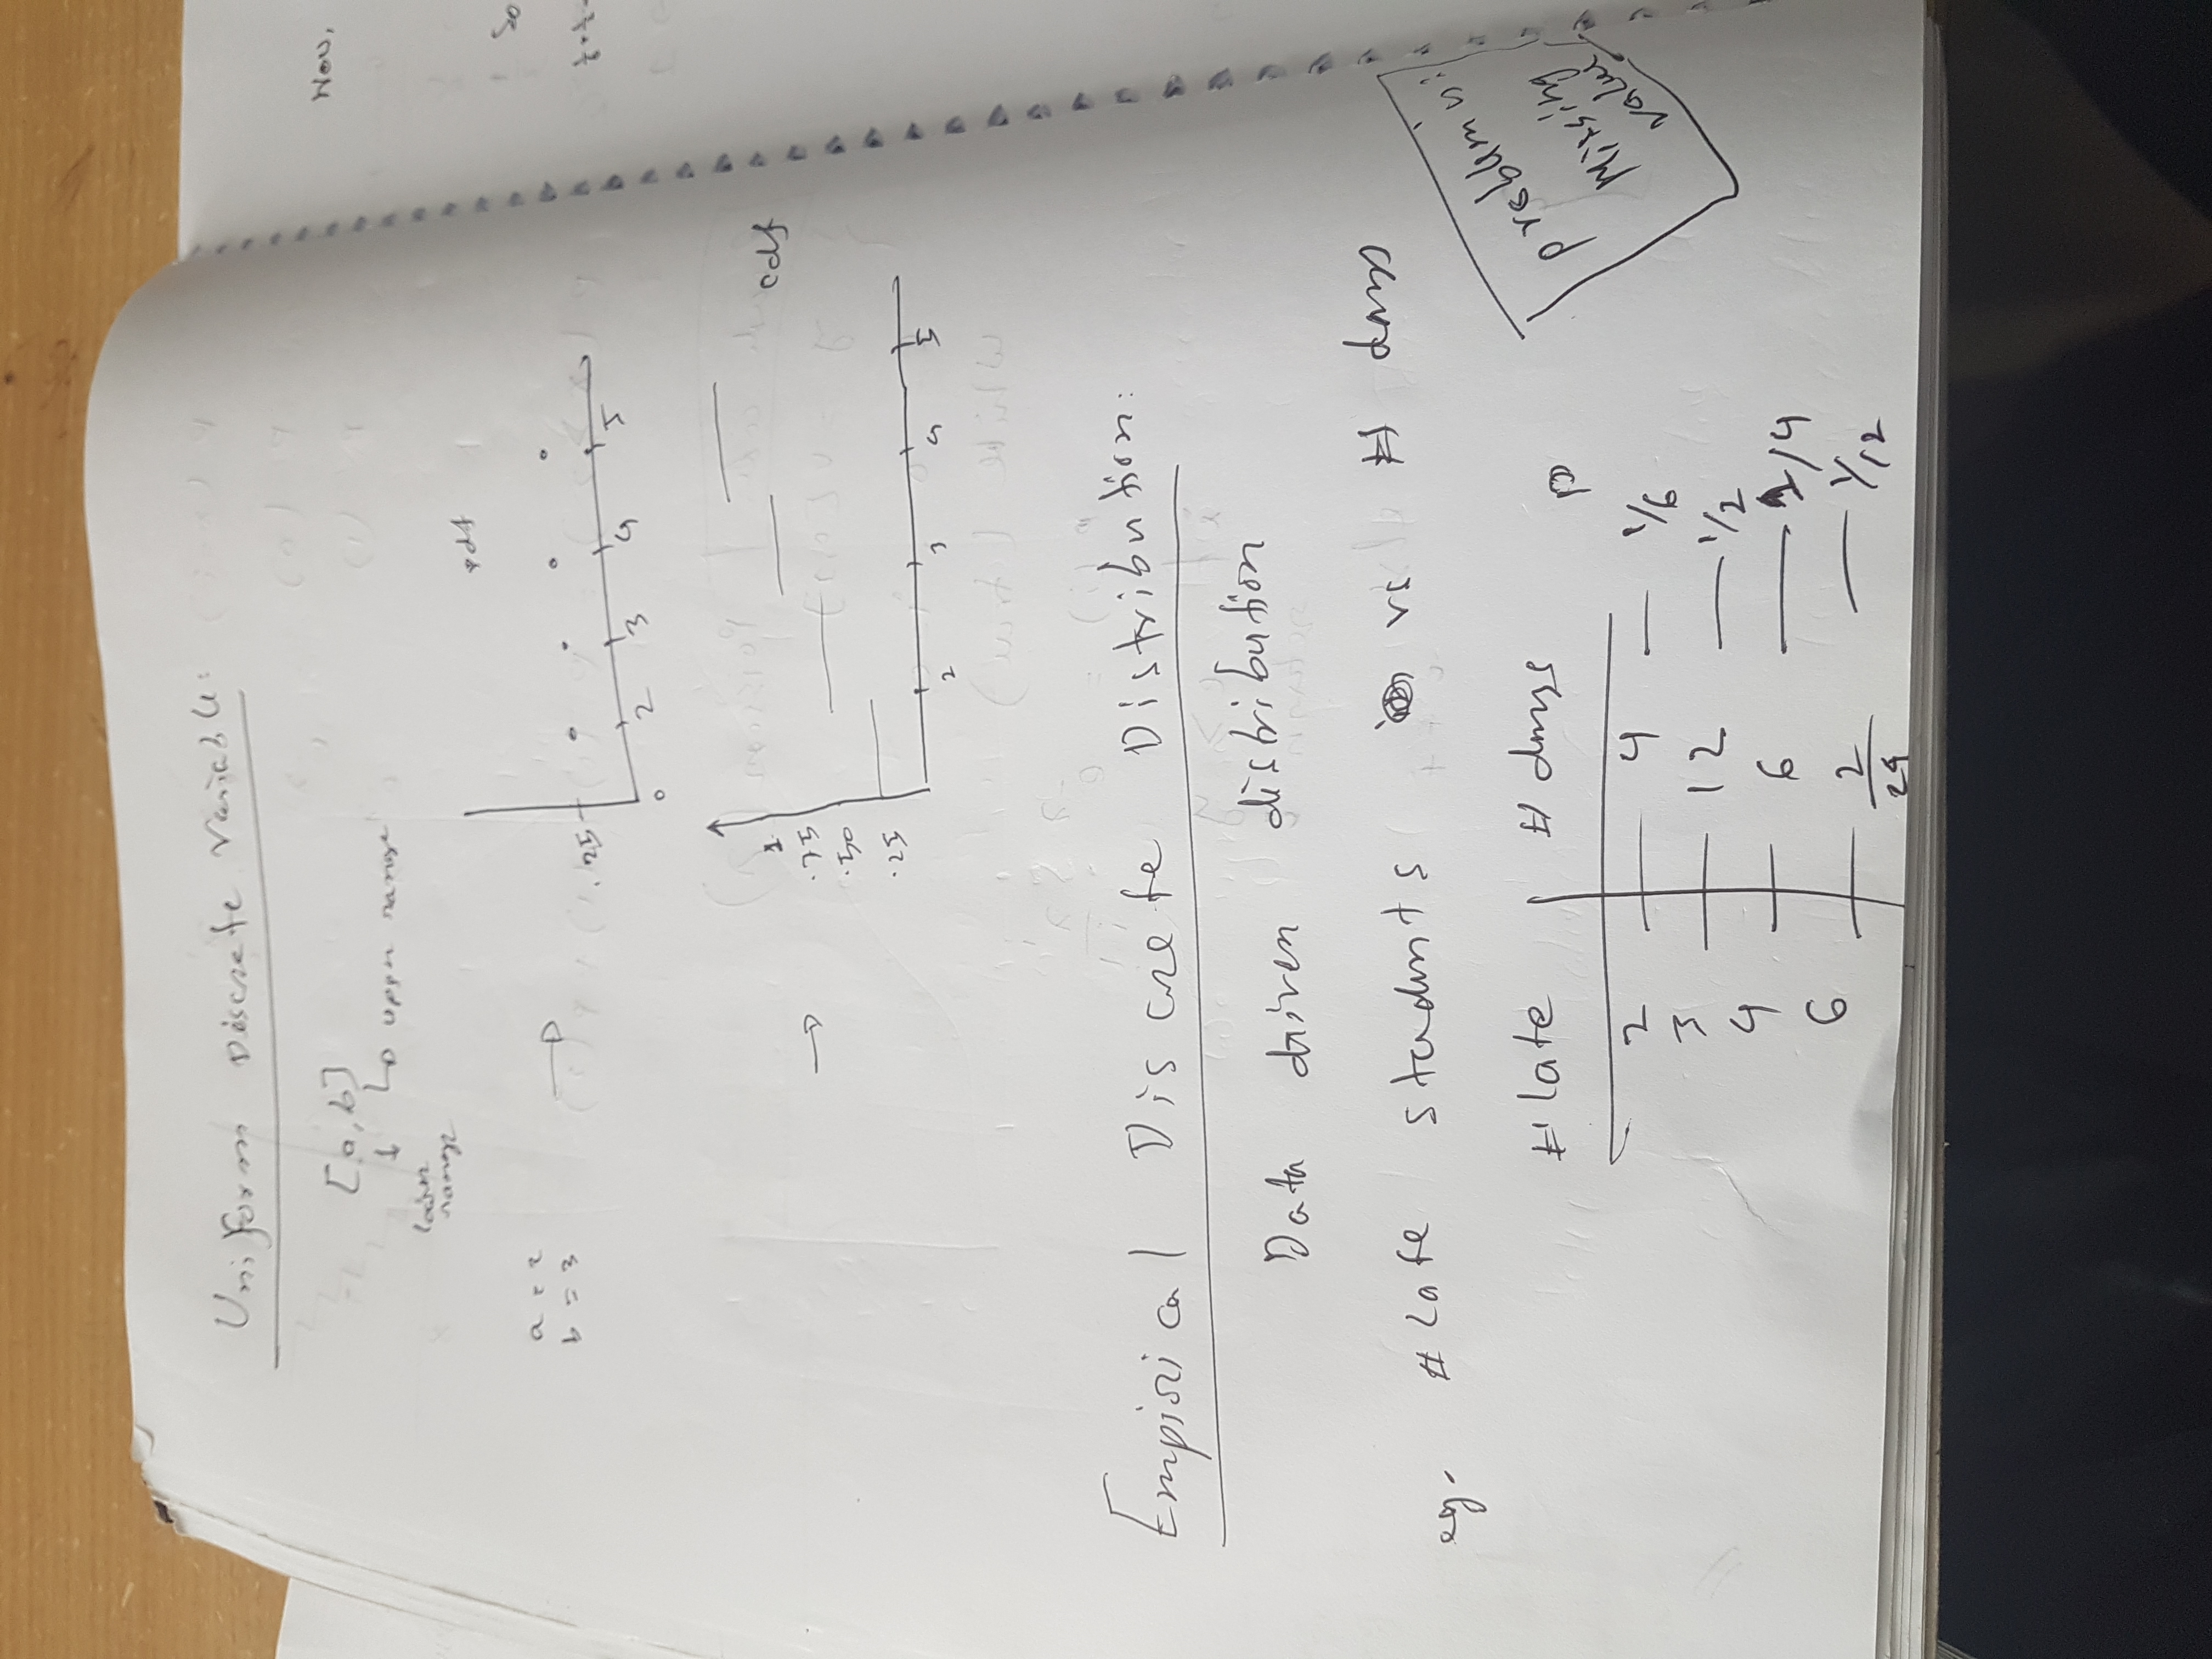 Uniform Discrete Variable:
[a, b]
↓ ↳ upper range
lower
range
pdf
a = 2
b = 3
.25
0 2 3 4 5
cdf
1
.75
.50
.25
2 3 4 5
Empirical Discrete Distribution:
Data driven distribution
eg. # late students vs # days
# late # days P
2 4 1/6
3 12 1/2
4 6 1/4
6 2 1/12
24
Problem is:
Missing
value
Now,
So